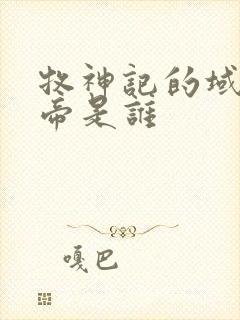 牧神記的域
帝是誰
嘎巴